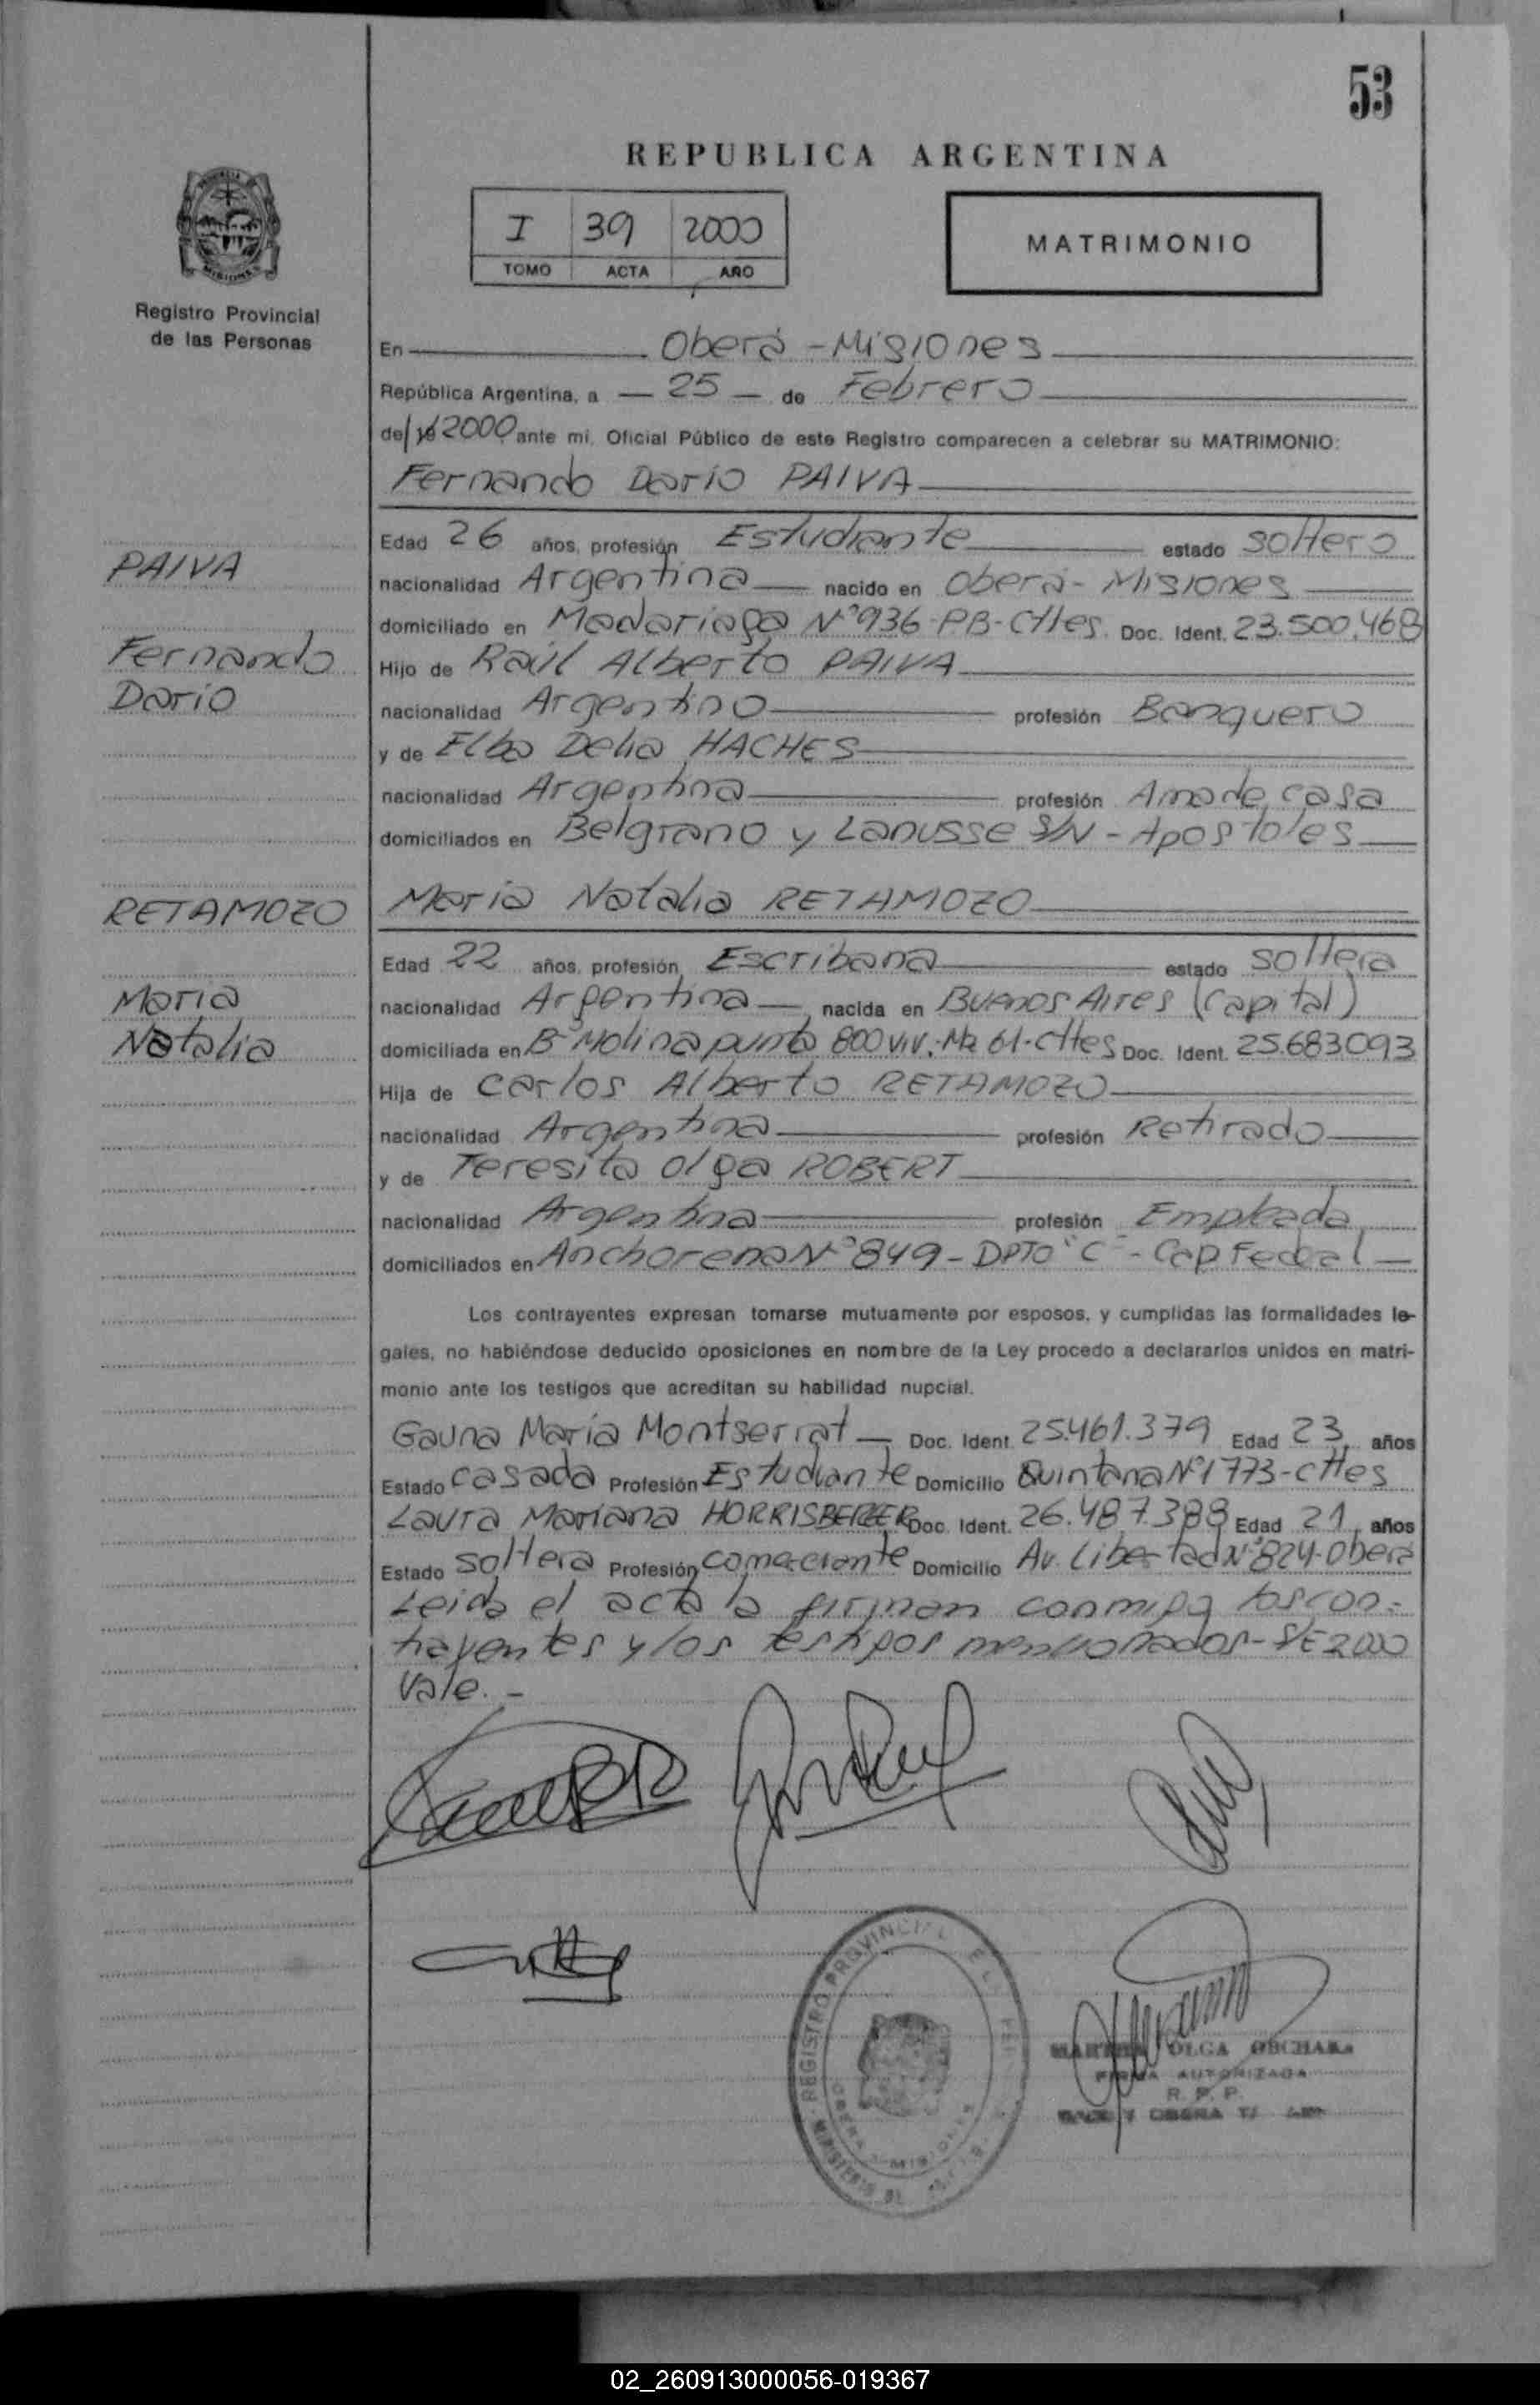 53
REPUBLICA ARGENTINA
I 39 2000
TOMO ACTA AÑO
MATRIMONIO
Registro Provincial
de las Personas
En Oberá - Misiones
República Argentina, a — 25 — de Febrero
del 19 2000 ante mí, Oficial Público de este Registro comparecen a celebrar su MATRIMONIO:
Fernando Dario PAIVA
Edad 26 años, profesión Estudiante estado soltero
PAIVA
nacionalidad Argentina nacido en Oberá - Misiones
domiciliado en Madariaga N°936-PB-Ctes. Doc. Ident. 23.500.468
Fernando
Hijo de Raúl Alberto PAIVA
Dario
nacionalidad Argentino profesión Banquero
y de Elba Delia HACHES
nacionalidad Argentina profesión Ama de casa
domiciliados en Belgrano y Lanusse S/N - Apostoles
RETAMOZO
Maria Natalia RETAMOZO
Edad 22 años, profesión Escribana estado soltera
Maria
nacionalidad Argentina nacida en Buenos Aires (Capital)
Natalia
domiciliada en B° Molina punta 800 Viv. Mz 61-Ctes Doc. Ident. 25.683093
Hija de Carlos Alberto RETAMOZO
nacionalidad Argentina profesión Retirado
y de Teresita Olga ROBERT
nacionalidad Argentina profesión Empleada
domiciliados en Anchorena N°849 - DPTO "C" - Cap Federal
Los contrayentes expresan tomarse mutuamente por esposos, y cumplidas las formalidades le-
gales, no habiéndose deducido oposiciones en nombre de la Ley procedo a declararlos unidos en matri-
monio ante los testigos que acreditan su habilidad nupcial.
Gauna María Montserrat — Doc. Ident. 25.461.379 Edad 23 años
Estado casada Profesión Estudiante Domicilio Quintana N°1773-Ctes
Laura Mariana HORRISBERGER Doc. Ident. 26.487.388 Edad 21 años
Estado soltera Profesión comerciante Domicilio Av. Libertad N°824-Oberá
Leida el acta la firman conmigo los con-
trayentes y los testigos mencionados - S/E 2000
Vale. -
REGISTRO PROVINCIAL DE LAS
OBERA MISIONES
MINISTERIO DE
OLGA OBCHARA
FIRMA AUTORIZADA
R. P. P.
OBERA
02_260913000056-019367